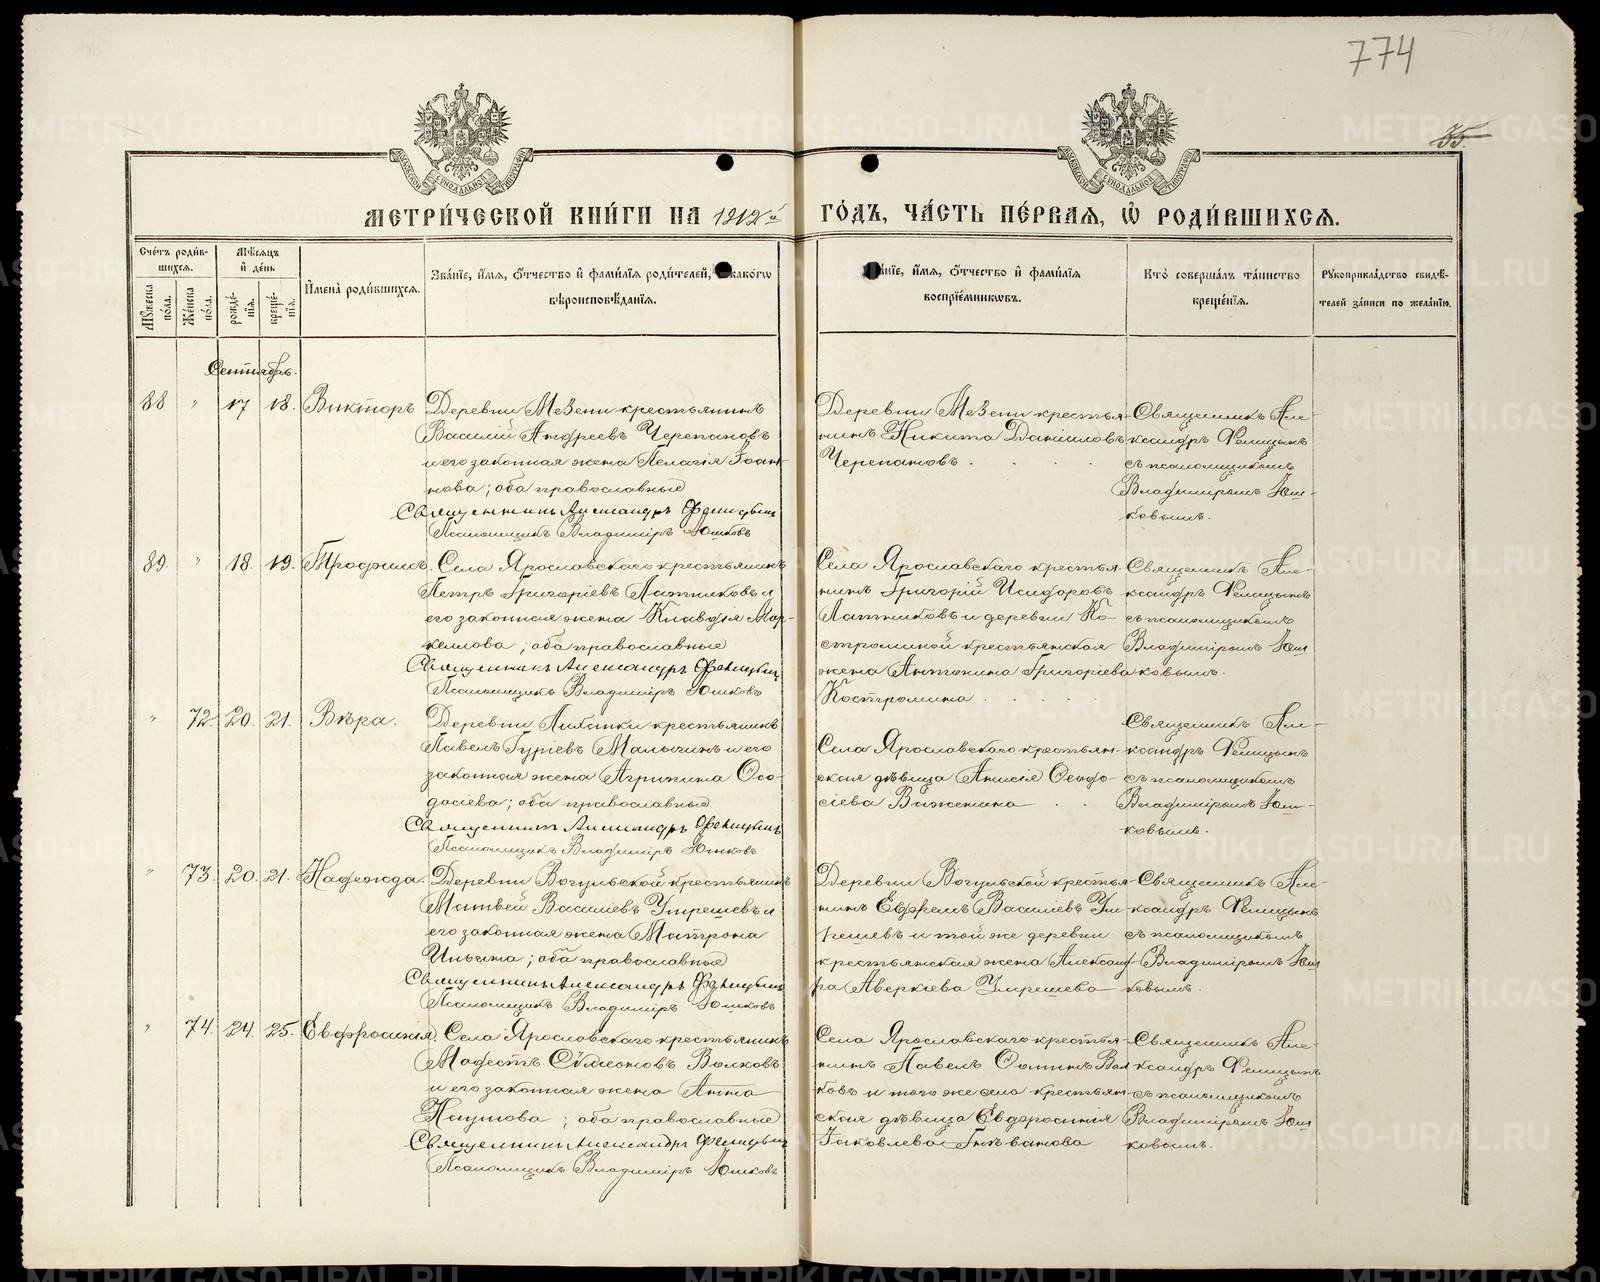 774
35
МЕТРИ́ЧЕСКОЙ КНИ́ГИ НА 1912й ГО́ДЪ, ЧА́СТЬ ПЕ́РВАЯ, Ѡ РОДИ́ВШИХСЯ.
Сче́тъ роди́вшихся.
Мꙋ́жеска по́ла.
Же́нска по́ла.
Мѣ́сяцъ и де́нь
рожде́нїя.
креще́нїя.
Имена́ роди́вшихся.
Зва́нїе, и́мя, о́тчество и фами́лїя роди́телей, и како́гѡ
вѣроисповѣ́данїя.
Зва́нїе, и́мя, о́тчество и фами́лїя
воспрїе́мникѡвъ.
Кто́ соверша́лъ та́инство
креще́нїя.
Рꙋкоприкла́дство свидѣ́-
телей за́писи по жела́нїю.
Сентябрь.
88 " 17 18. Викторъ
Деревни Мезени крестьянинъ
Василій Андреевъ Черепановъ
и его законная жена Пелагія Іоан-
нова; оба православные
Священникъ Александръ Феницынъ
Псаломщикъ Владиміръ Юшковъ
Деревни Мезени крестья-
нинъ Никита Даніиловъ
Черепановъ.
Священникъ Але-
ксандръ Феницынъ
съ псаломщикомъ
Владиміромъ Юш-
ковымъ.
89. " 18. 19. Трофимъ.
Села Ярославскаго крестьянинъ
Петръ Григоріевъ Латниковъ и
его законная жена Клавдія Мар-
келлова; оба православные
Священникъ Александръ Феницынъ
Псаломщикъ Владиміръ Юшковъ
Села Ярославскаго крестья-
нинъ Григорій Исидоровъ
Латниковъ и деревни Ко-
строминой крестьянская
жена Антонина Григоріева
Костромина
Священникъ Але-
ксандръ Феницынъ
съ псаломщикомъ
Владиміромъ Юш
ковымъ.
" 72. 20. 21. Вѣра.
Деревни крестьянинъ
Павелъ Гуріевъ Малыгинъ и его
законная жена Агрипина Ѳео-
досіева; оба православные
Священникъ Александръ Феницынъ
Псаломщикъ Владиміръ Юшковъ
Села Ярославскаго крестьян-
ская дѣвица Анисія Ѳеодо-
сіева Важенина
Священникъ Але-
ксандръ Феницынъ
съ псаломщикомъ
Владиміромъ Юш-
ковымъ.
" 73. 20. 21. Надежда.
Деревни Вогульской крестьянинъ
Матвей Василіевъ Упрешевъ и
его законная жена Матрона
Ильина; оба православные
Священникъ Александръ Феницынъ
Псаломщикъ Владиміръ Юшковъ
Деревни Вогульской крестья-
нинъ Ефремъ Василіевъ Уп-
решевъ и той же деревни
крестьянская жена Александ-
ра Аверкіева Упрешева
Священникъ Але-
ксандръ Феницынъ
съ псаломщикомъ
Владиміромъ Юш
ковымъ.
" 74. 24. 25. Евфросинія.
Села Ярославскаго крестьянинъ
Модестъ Сѵмеоновъ Волковъ
и его законная жена Анна
Наумова; оба православные
Священникъ Александръ Феницынъ
Псаломщикъ Владиміръ Юшковъ
Села Ярославскаго крестья-
нинъ Павелъ Ѳоминъ Вол
ковъ и того же села крестьян-
ская дѣвица Евфросинія
Іаковлева Гнѣванова
Священникъ Але-
ксандръ Феницынъ
съ псаломщикомъ
Владиміромъ Юш
ковымъ.
METRIKI.GASO-URAL.RU